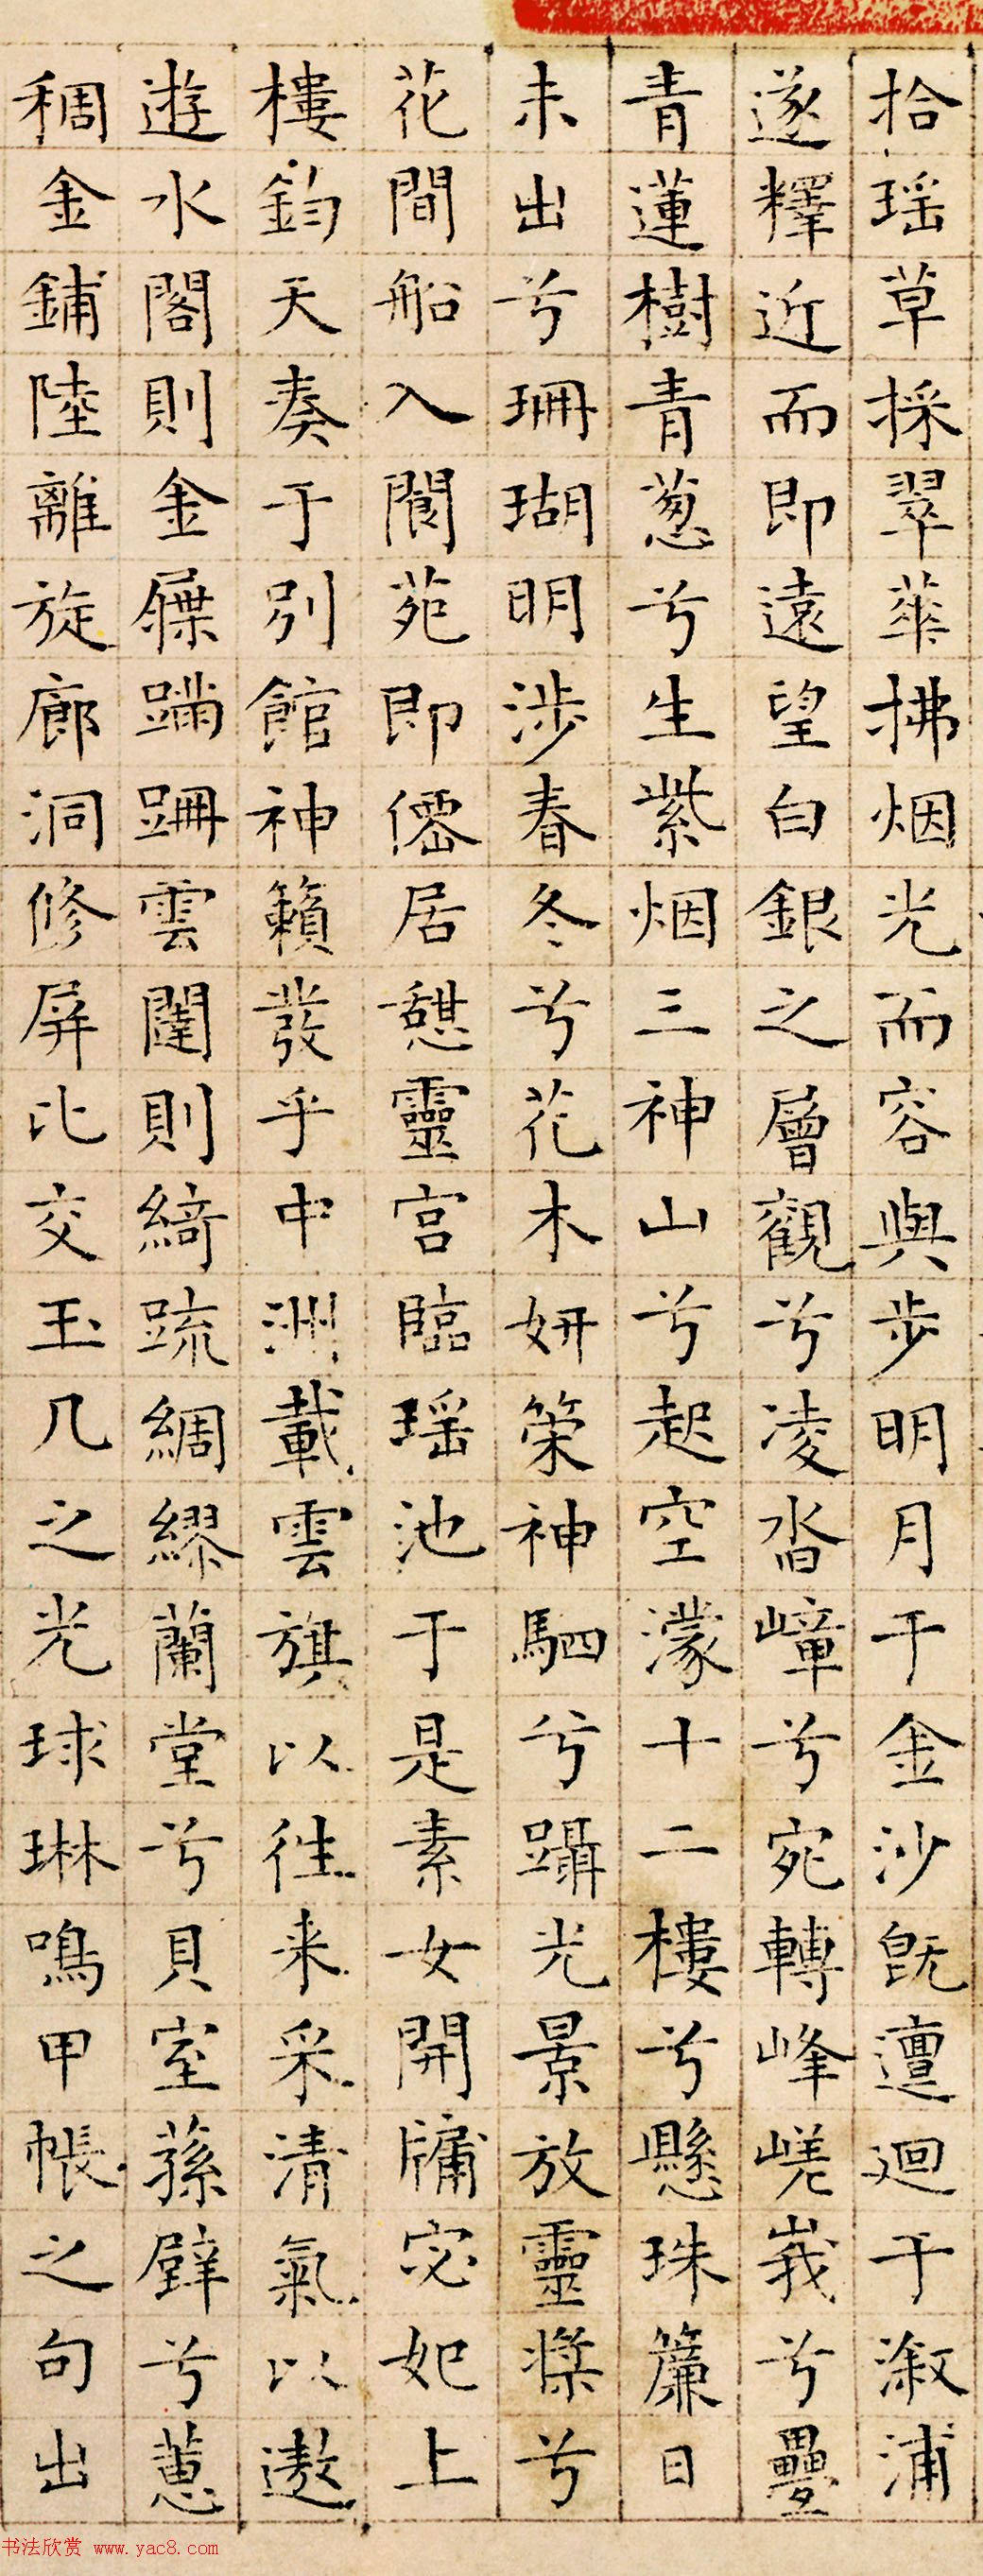 拾瑶草採翠華拂烟光而容與步明月于金沙旣邅迴于溆浦
遂釋近而即遠望白銀之層觀兮凌沓嶂兮宛轉峰嵯峩兮疊
青蓮樹青葱兮生紫烟三神山兮起空濛十二樓兮懸珠簾日
未出兮珊瑚明涉春冬兮花木妍策神駟兮躡光景放靈槳兮
花間船入閬苑即僊居憩靈宫臨瑶池于是素女開牖宓妃上
樓鈞天奏于別館神籟發乎中洲載雲旗以往来采清氣以遨
遊水閣則金屧蹣跚雲闥則綺疏綢繆蘭堂兮貝室蓀壁兮蕙
稠金鋪陸離旋廊洞修屏比交玉几之光球琳鳴甲帳之句出
书法欣赏 www.yac8.com